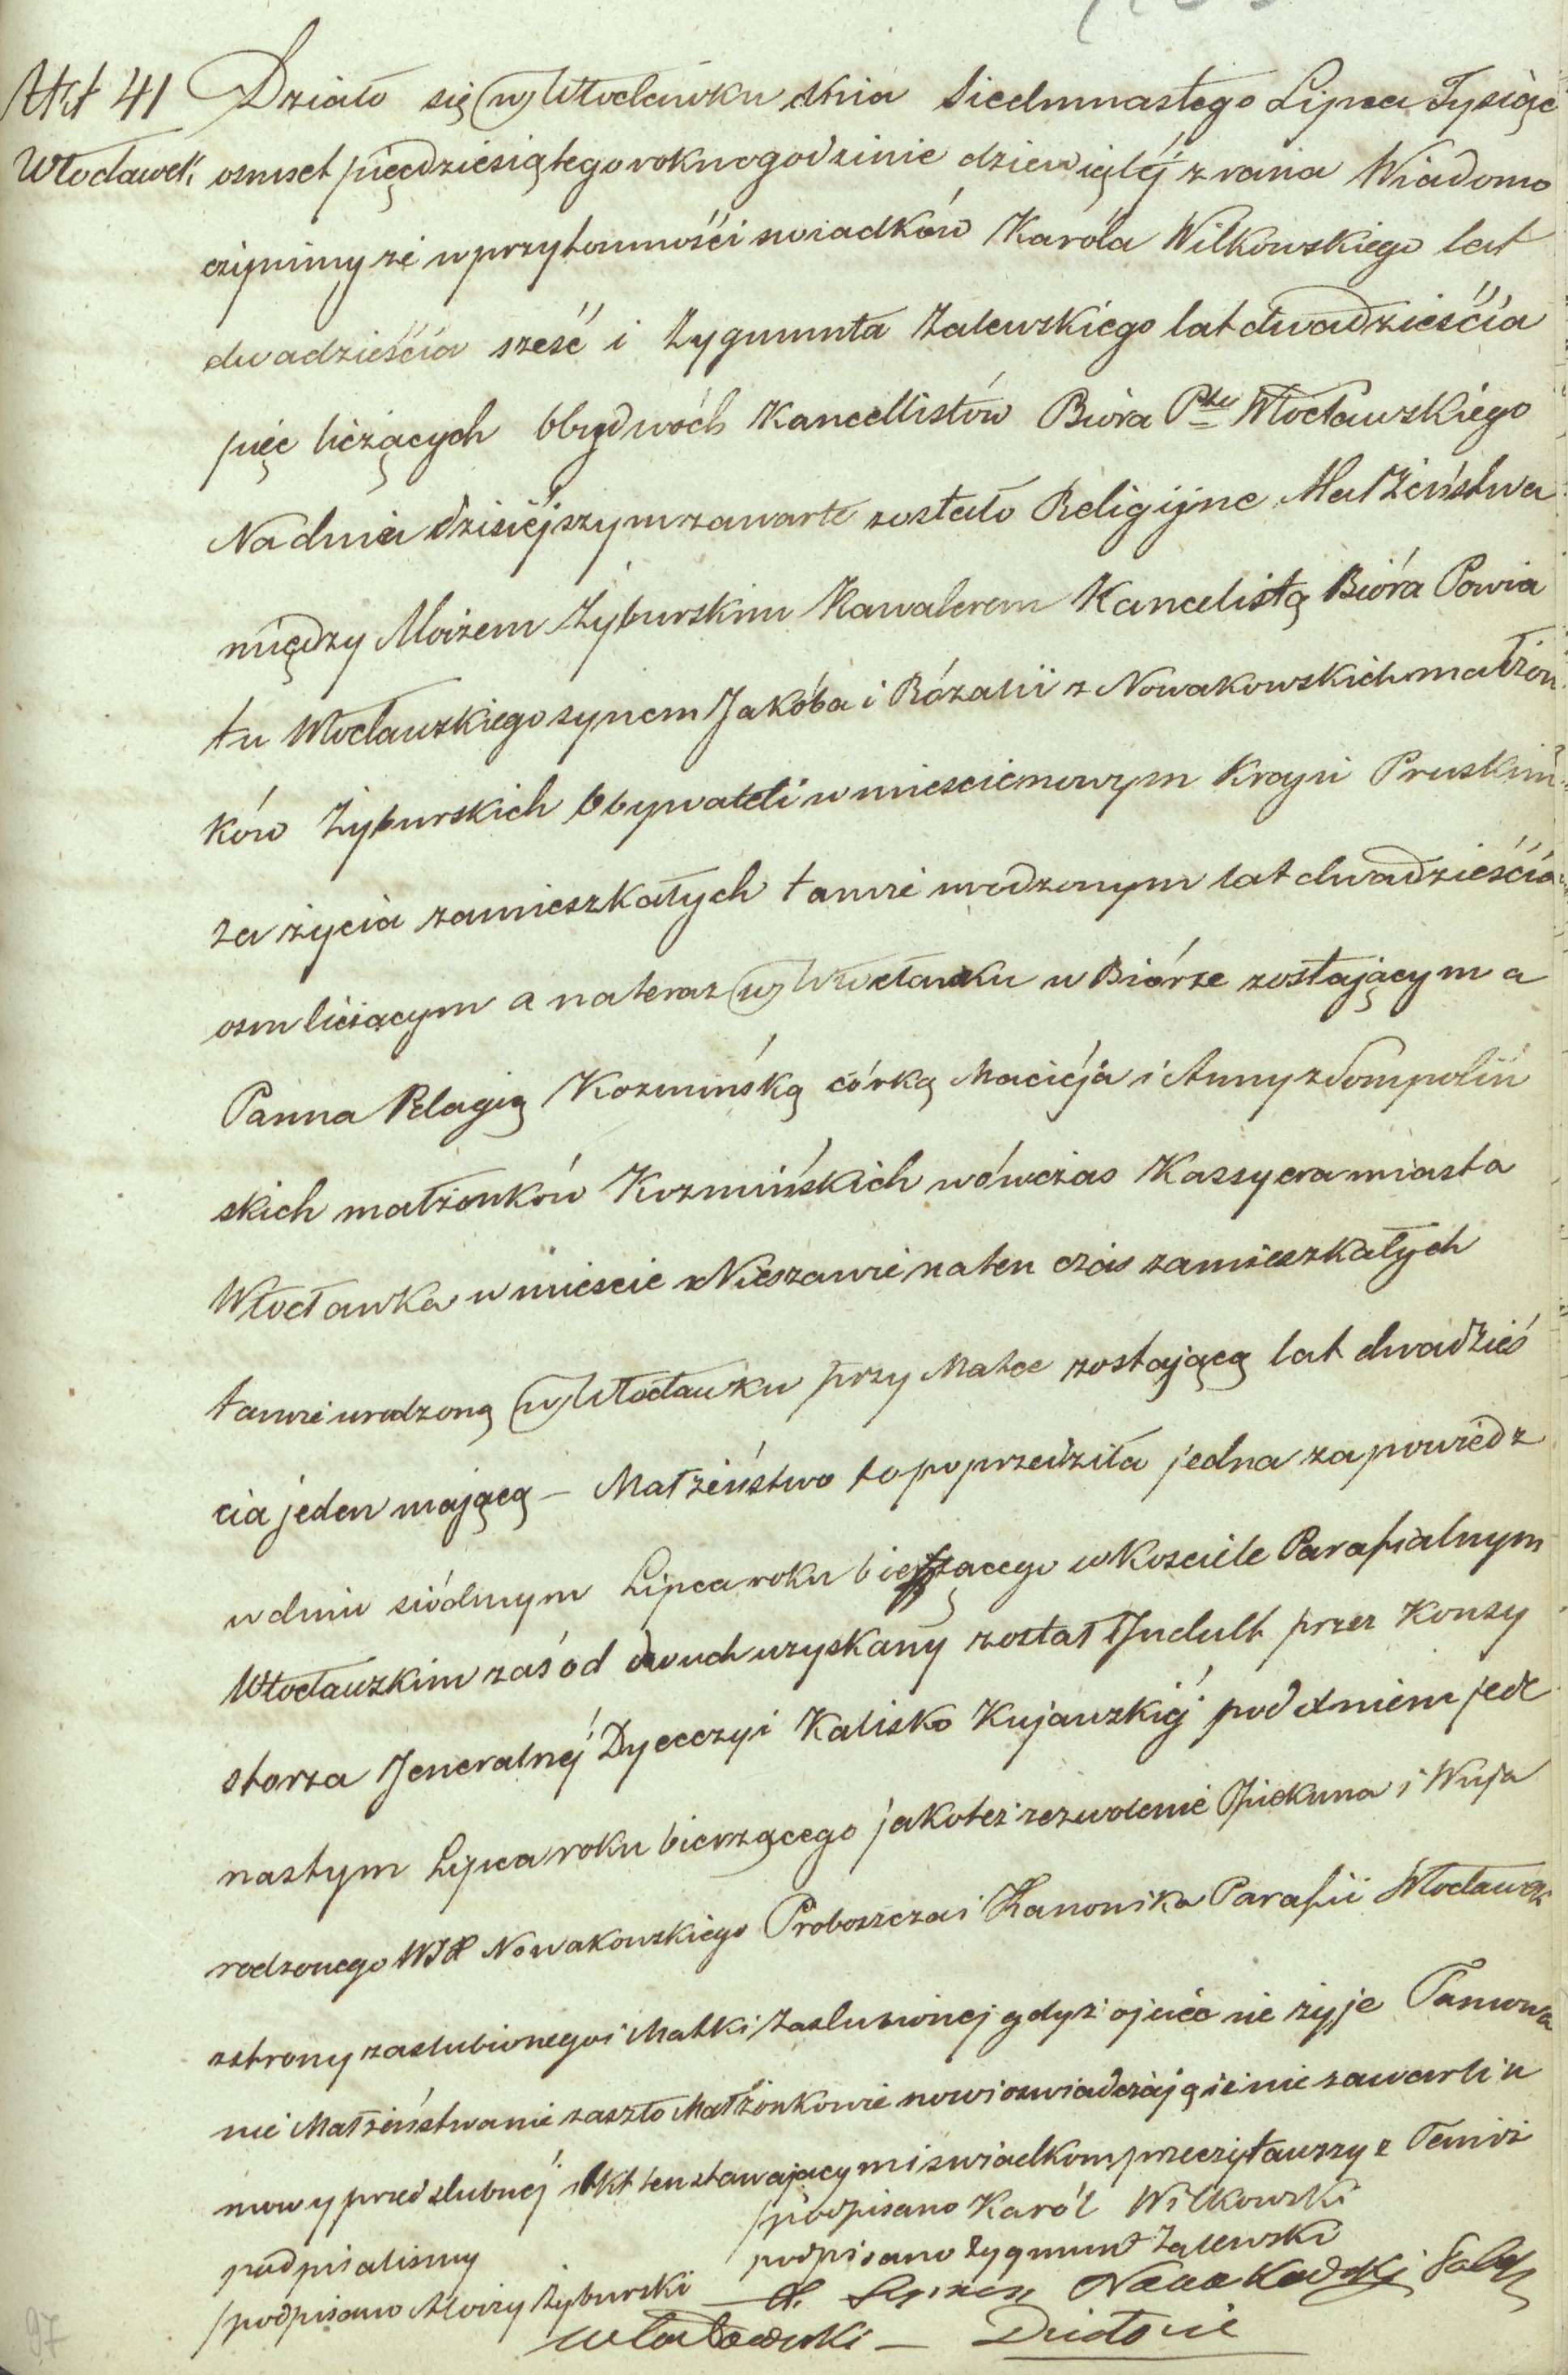 Akt 41 Działo się w Włocławku dnia Siedmnastego Lipca Tysiąc
Włocławek osmset pięćdziesiątego roku o godzinie dziewiątéj z rana Wiadomo
czynimy że w przytomności swiadków Karóla Wilkowskiego lat
dwadzieścia sześć i Zygmunta Zalewskiego lat dwadzieścia
pięc liczących Obydwóch Kancellistów Bióra Ptu Włocławskiego
Na dniu dzisiéjszym zawarte zostało Religijne Małżeństwo
między Aloizem Żyburskim Kawalerem Kancelistą Bióra Powia
tu Włocławskiego synem Jakóba i Rózalii z Nowakowskich małżon
ków Żyburskich Obywateli w miescie nowym Kroju Pruskim
za życia zamieszkałych tamże urodzonym lat dwadzieścia
osm liczącym a nateraz w Włocławku w Biórze zostającym a
Panna Pelagią Kozmińską córką Maciéja i Anny z Sompoliń
skich małżonków Kozmińskich wówczas Kassyera miasta
Włocławka w miescie Nieszawie na ten czas zamieszkałych
tamże urodzoną w Włocławku przy Matce zostającą lat dwadzieś
cia jeden mającą – Małżeństwo to poprzedziła jedna zapowiedz
w dniu siódmym Lipca roku bieżącego w Kosciele Parafialnym
Włocławskim zaś od dwuch uzyskany został Indult przez Konsy
storza Jeneralnéj Dyecezyi Kalisko Kujawskiéj pod dniem jede
nastym Lipca roku bierzącego jakoteż zezwolenie Opiekuna i Wuja
rodzonego WJX Nowakowskiego Proboszcza i Kanonika Parafii Włocławsk
z strony zaslubionego i Matki Zaslubionej gdyż ojciec nie żyje Tamowa
nie Małżeństwa nie zaszło Małżonkowie nowi oswiadczają iż nie zawarli u
mowy przedslubnéj Akt ten stawającym i swiadkom przeczytawszy z Temiż
podpisalismy
/podpisano Karól Wilkowski
podpisano Zygmunt Zalewski
/podpisano Aloizy Żyburski
Nowakowski
97